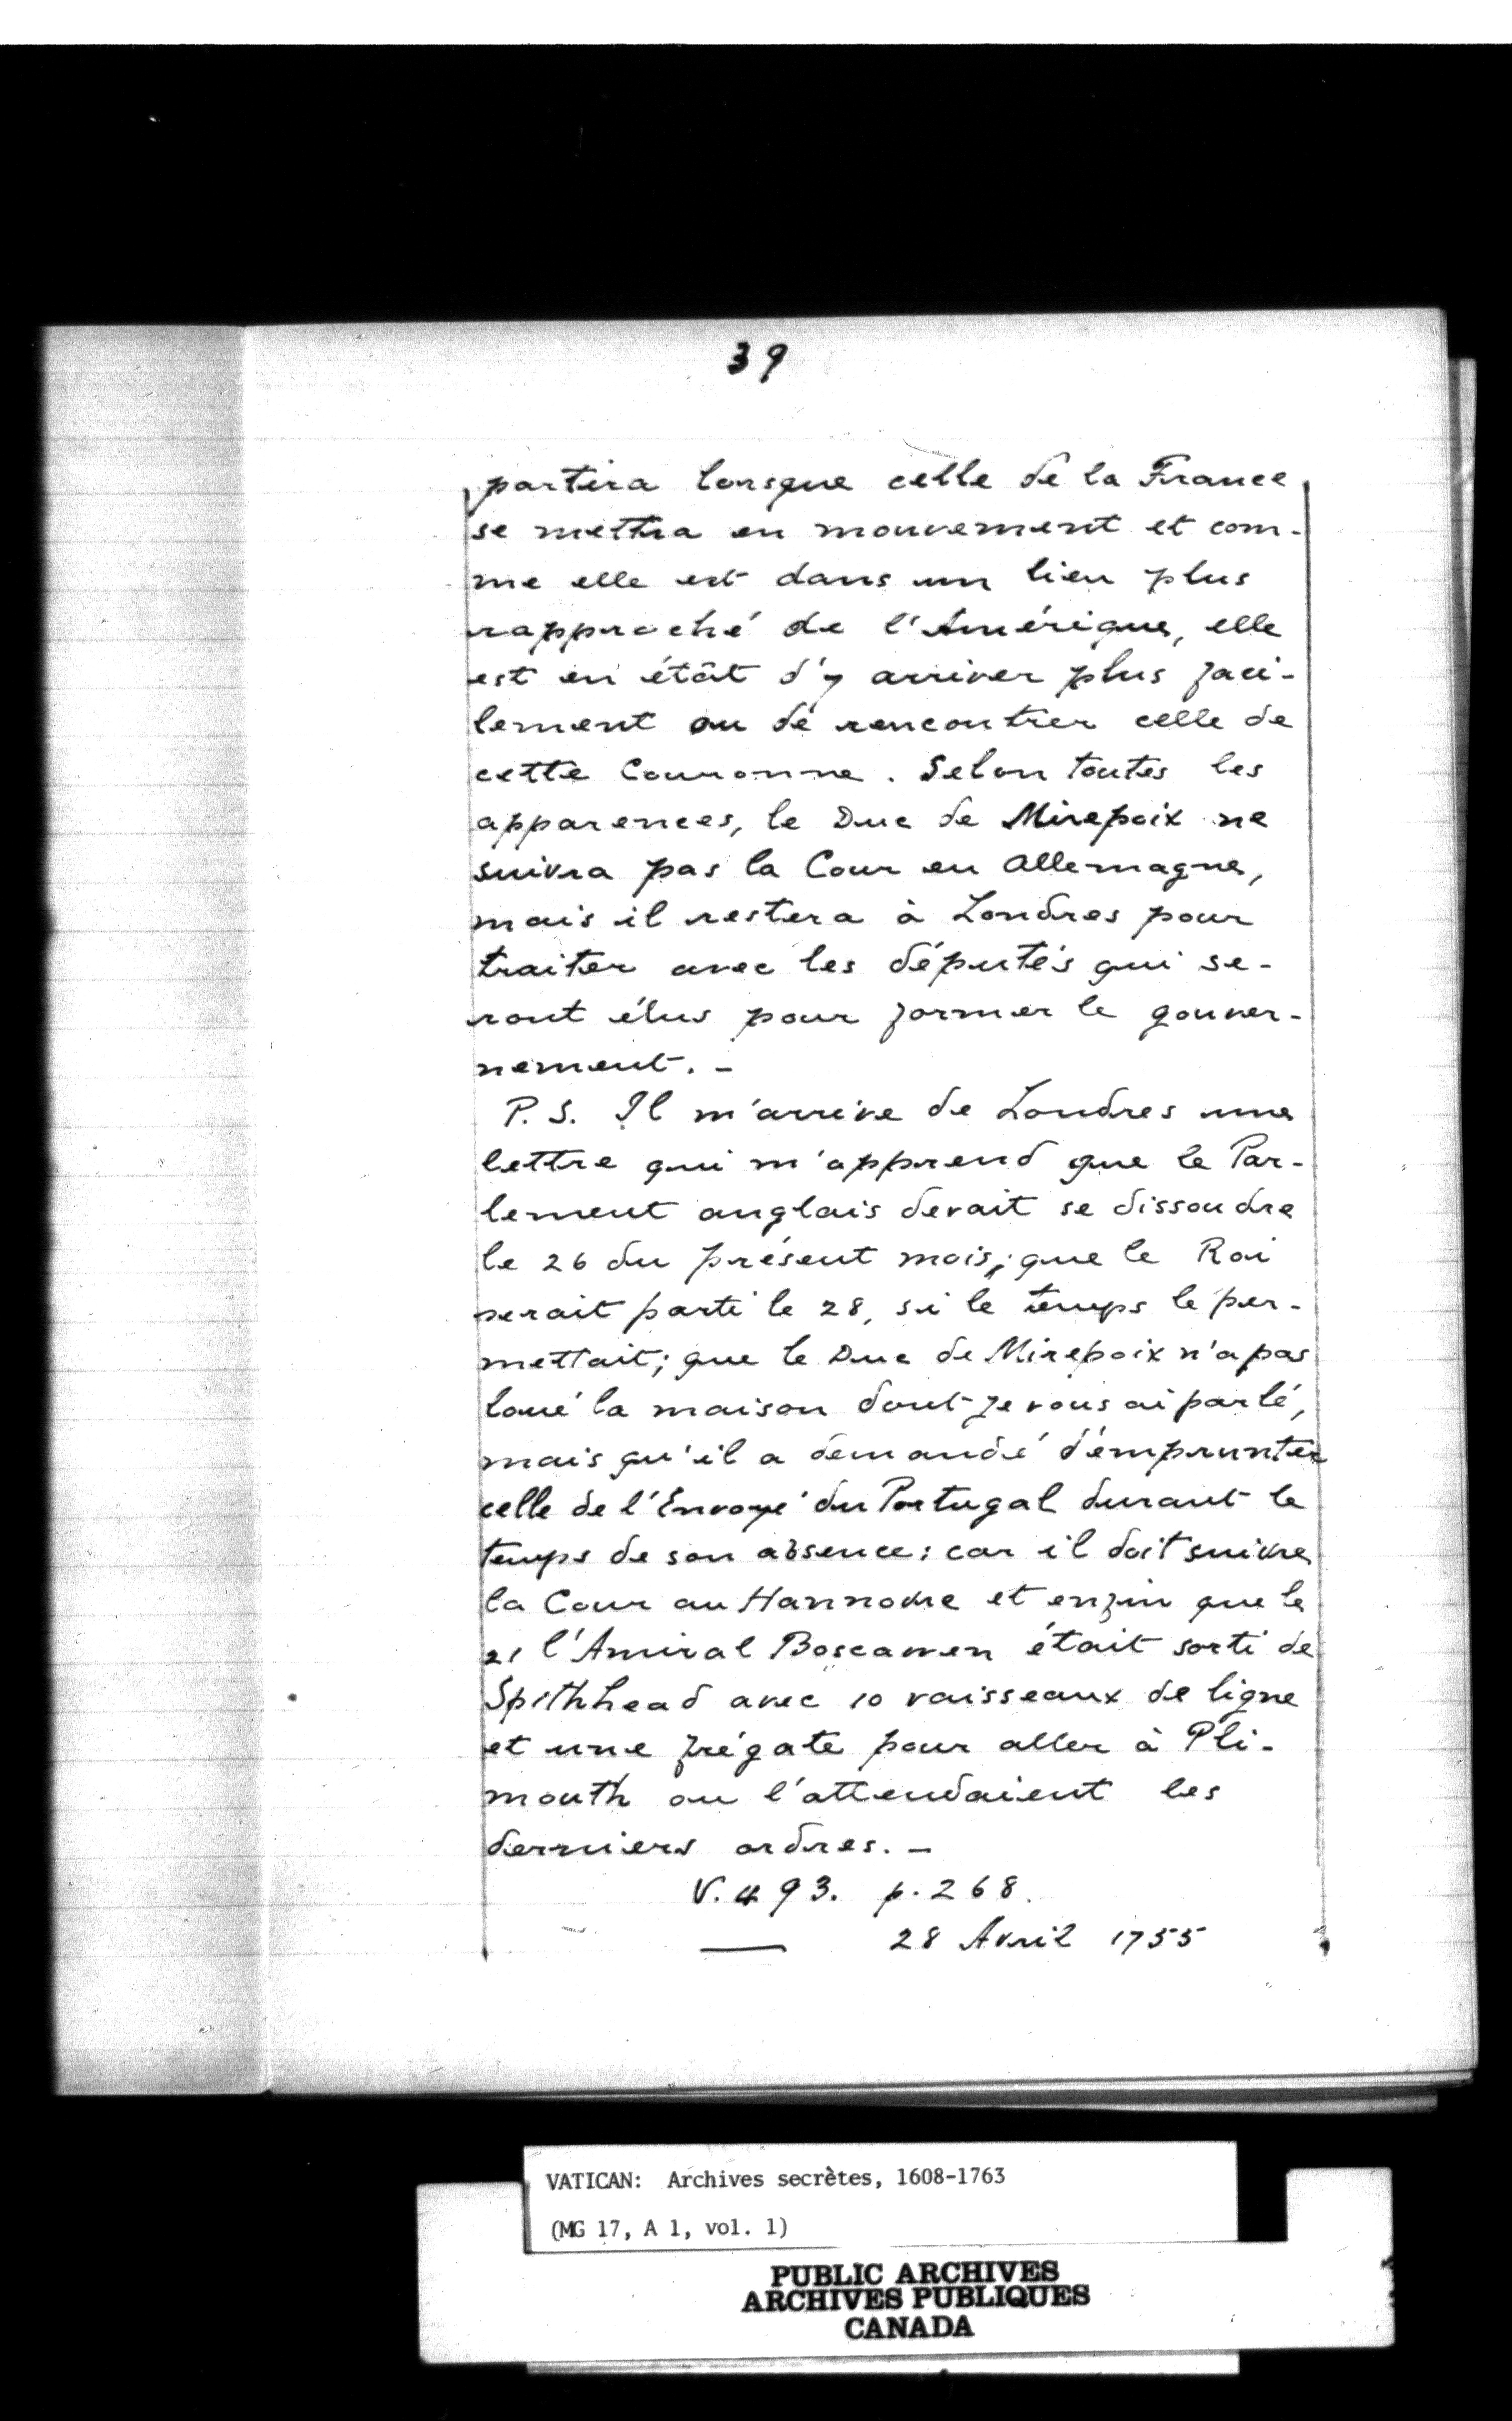 39
partira lorsque celle de la France
se mettra en mouvement et com-
me elle est dans un lieu plus
rapproché de l'Amérique, elle
est en étât d'y arriver plus faci-
lement ou de rencontrer celle de
cette Couronne. Selon toutes les
apparences, le Duc de Mirepoix ne
suivra pas la Cour en Allemagne,
mais il restera à Londres pour
traiter avec les députés qui se-
ront élus pour former le gouver-
nement. -
P.S. Il m'arrive de Londres une
lettre qui m'apprend que le Par-
lement anglais devait se dissoudre
le 26 du présent mois; que le Roi
serait parti le 28, si le temps le per-
mettait; que le Duc de Mirepoix n'a pas
loué la maison dont je vous ai parlé,
mais qu'il a demandé d'emprunter
celle de l'Envoyé du Portugal durant le
temps de son absence: car il doit suivre
la Cour au Hannovre et enfin que le
21 l'Amiral Boscawen était sorti de
Spithhead avec 10 vaisseaux de ligne
et une frégate pour aller à Pli-
mouth ou l'attendaient les
derniers ordres. -
V. 493. p. 268.
28 Avril 1755
VATICAN: Archives secrètes, 1608-1763
(MG 17, A 1, vol. 1)
PUBLIC ARCHIVES
ARCHIVES PUBLIQUES
CANADA